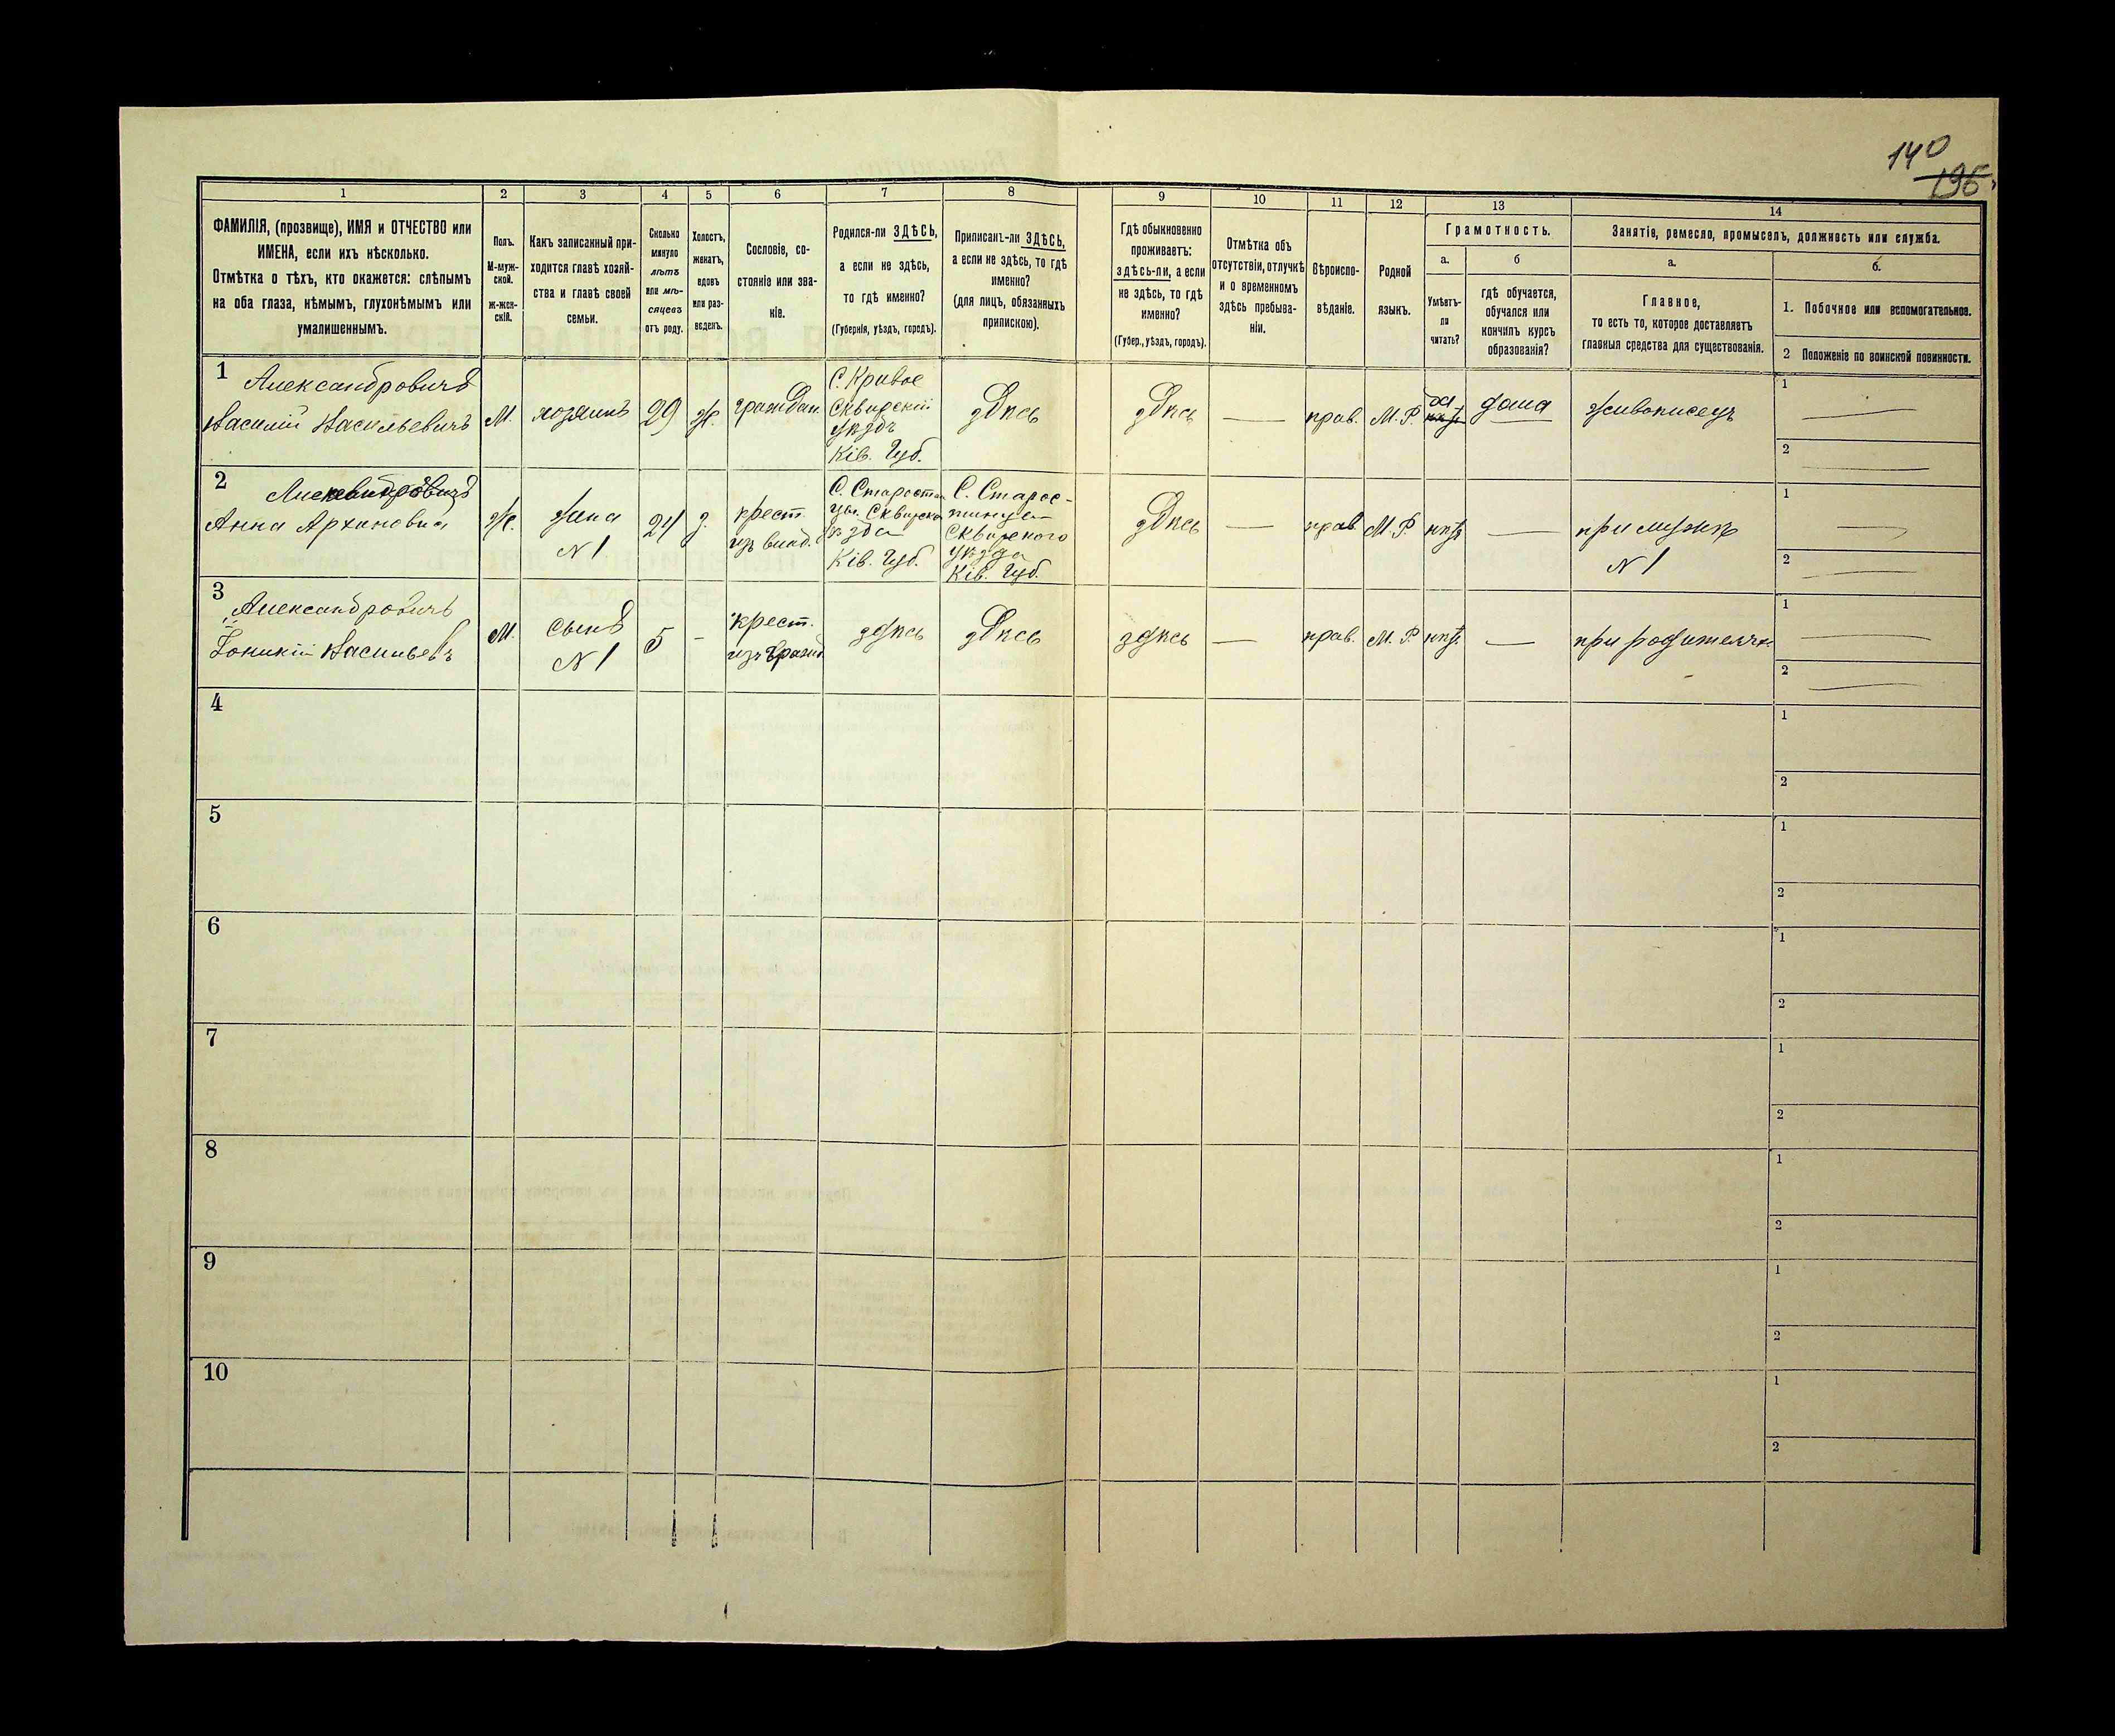 140
195
1
2
3
4
5
6
7
8
9
10
11
12
13
14
ФАМИЛІЯ, (прозвище), ИМЯ и ОТЧЕСТВО или
ИМЕНА, если ихъ нѣсколько.
Отмѣтка о тѣхъ, кто окажется: слѣпымъ
на оба глаза, нѣмымъ, глухонѣмымъ или
умалишеннымъ.
Полъ.
М-муж-
ской.
ж-жен-
скій.
Какъ записанный при-
ходится главѣ хозяй-
ства и главѣ своей
семьи.
Сколько
минуло
лѣтъ
или мѣ-
сяцевъ
отъ роду.
Холостъ,
женатъ,
вдовъ
или раз-
веденъ.
Сословіе, со-
стояніе или зва-
ніе.
Родился-ли ЗДѢСЬ,
а если не здѣсь,
то гдѣ именно?
(Губернія, уѣздъ, городъ).
Приписанъ-ли ЗДѢСЬ,
а если не здѣсь, то гдѣ
именно?
(для лицъ, обязанныхъ
припискою).
Гдѣ обыкновенно
проживаетъ:
здѣсь-ли, а если
не здѣсь, то гдѣ
именно?
(Губер., уѣздъ, городъ).
Отмѣтка объ
отсутствіи, отлучкѣ
и о временномъ
здѣсь пребыва-
ніи.
Вѣроиспо-
вѣданіе.
Родной
языкъ.
Грамотность.
а.
Умѣетъ-
ли
читать?
б
гдѣ обучается,
обучался или
кончилъ курсъ
образованія?
Занятіе, ремесло, промыселъ, должность или служба.
а.
Главное,
то есть то, которое доставляетъ
главныя средства для существованія.
б.
1. Побочное или вспомогательное.
2 Положеніе по воинской повинности.
1
Александровичъ
Василій Васильевичъ
М.
хозяинъ
29
ж.
граждан.
С. Кривое
Сквирскій
уѣздъ
Кіев. Губ.
здѣсь
здѣсь
—
прав.
М. Р.
да
нѣтъ
дома
живописецъ
1
2
2
Александровичъ
Анна Архиповна
Ж.
жена
N 1
24
з.
крест.
изъ влад.
Кіев. Губ.
С. Старос-
тинцы
Сквирского
уѣзда
Кіев. Губ.
здѣсь
—
прав.
М. Р.
нѣтъ
—
при мужѣ
N 1
1
2
3
Александровичъ
Іоникій Васильевъ
М.
сынъ
N 1
5
-
крест.
здѣсь
здѣсь
здѣсь
—
прав.
М. Р.
нѣтъ
—
при родителяхъ
1
2
4
1
2
5
1
2
6
1
2
7
1
2
8
1
2
9
1
2
10
1
2